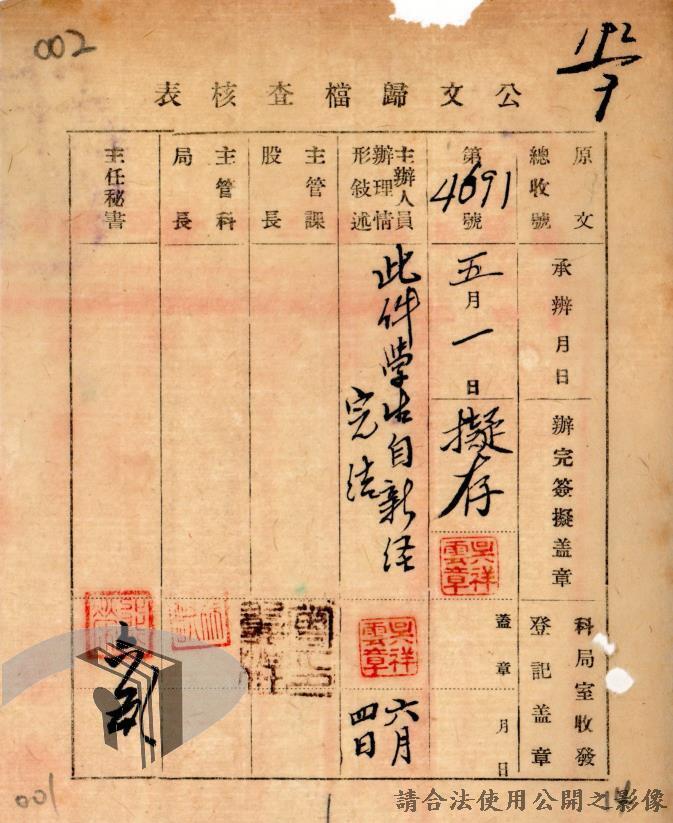 002
192/7
公文歸檔查核表
原文
總收號
承辦月日
辦完簽擬蓋章
科局室收發
登記蓋章
第4691號
五月一日
擬存
吳祥雲章
蓋章
月日
主辦人員
辦理情
形敍述
此件學生自新經
完結
吳祥雲章
六月
四日
主管課
股長
主管科
局長
主任秘書
001
1
請合法使用公開之影像